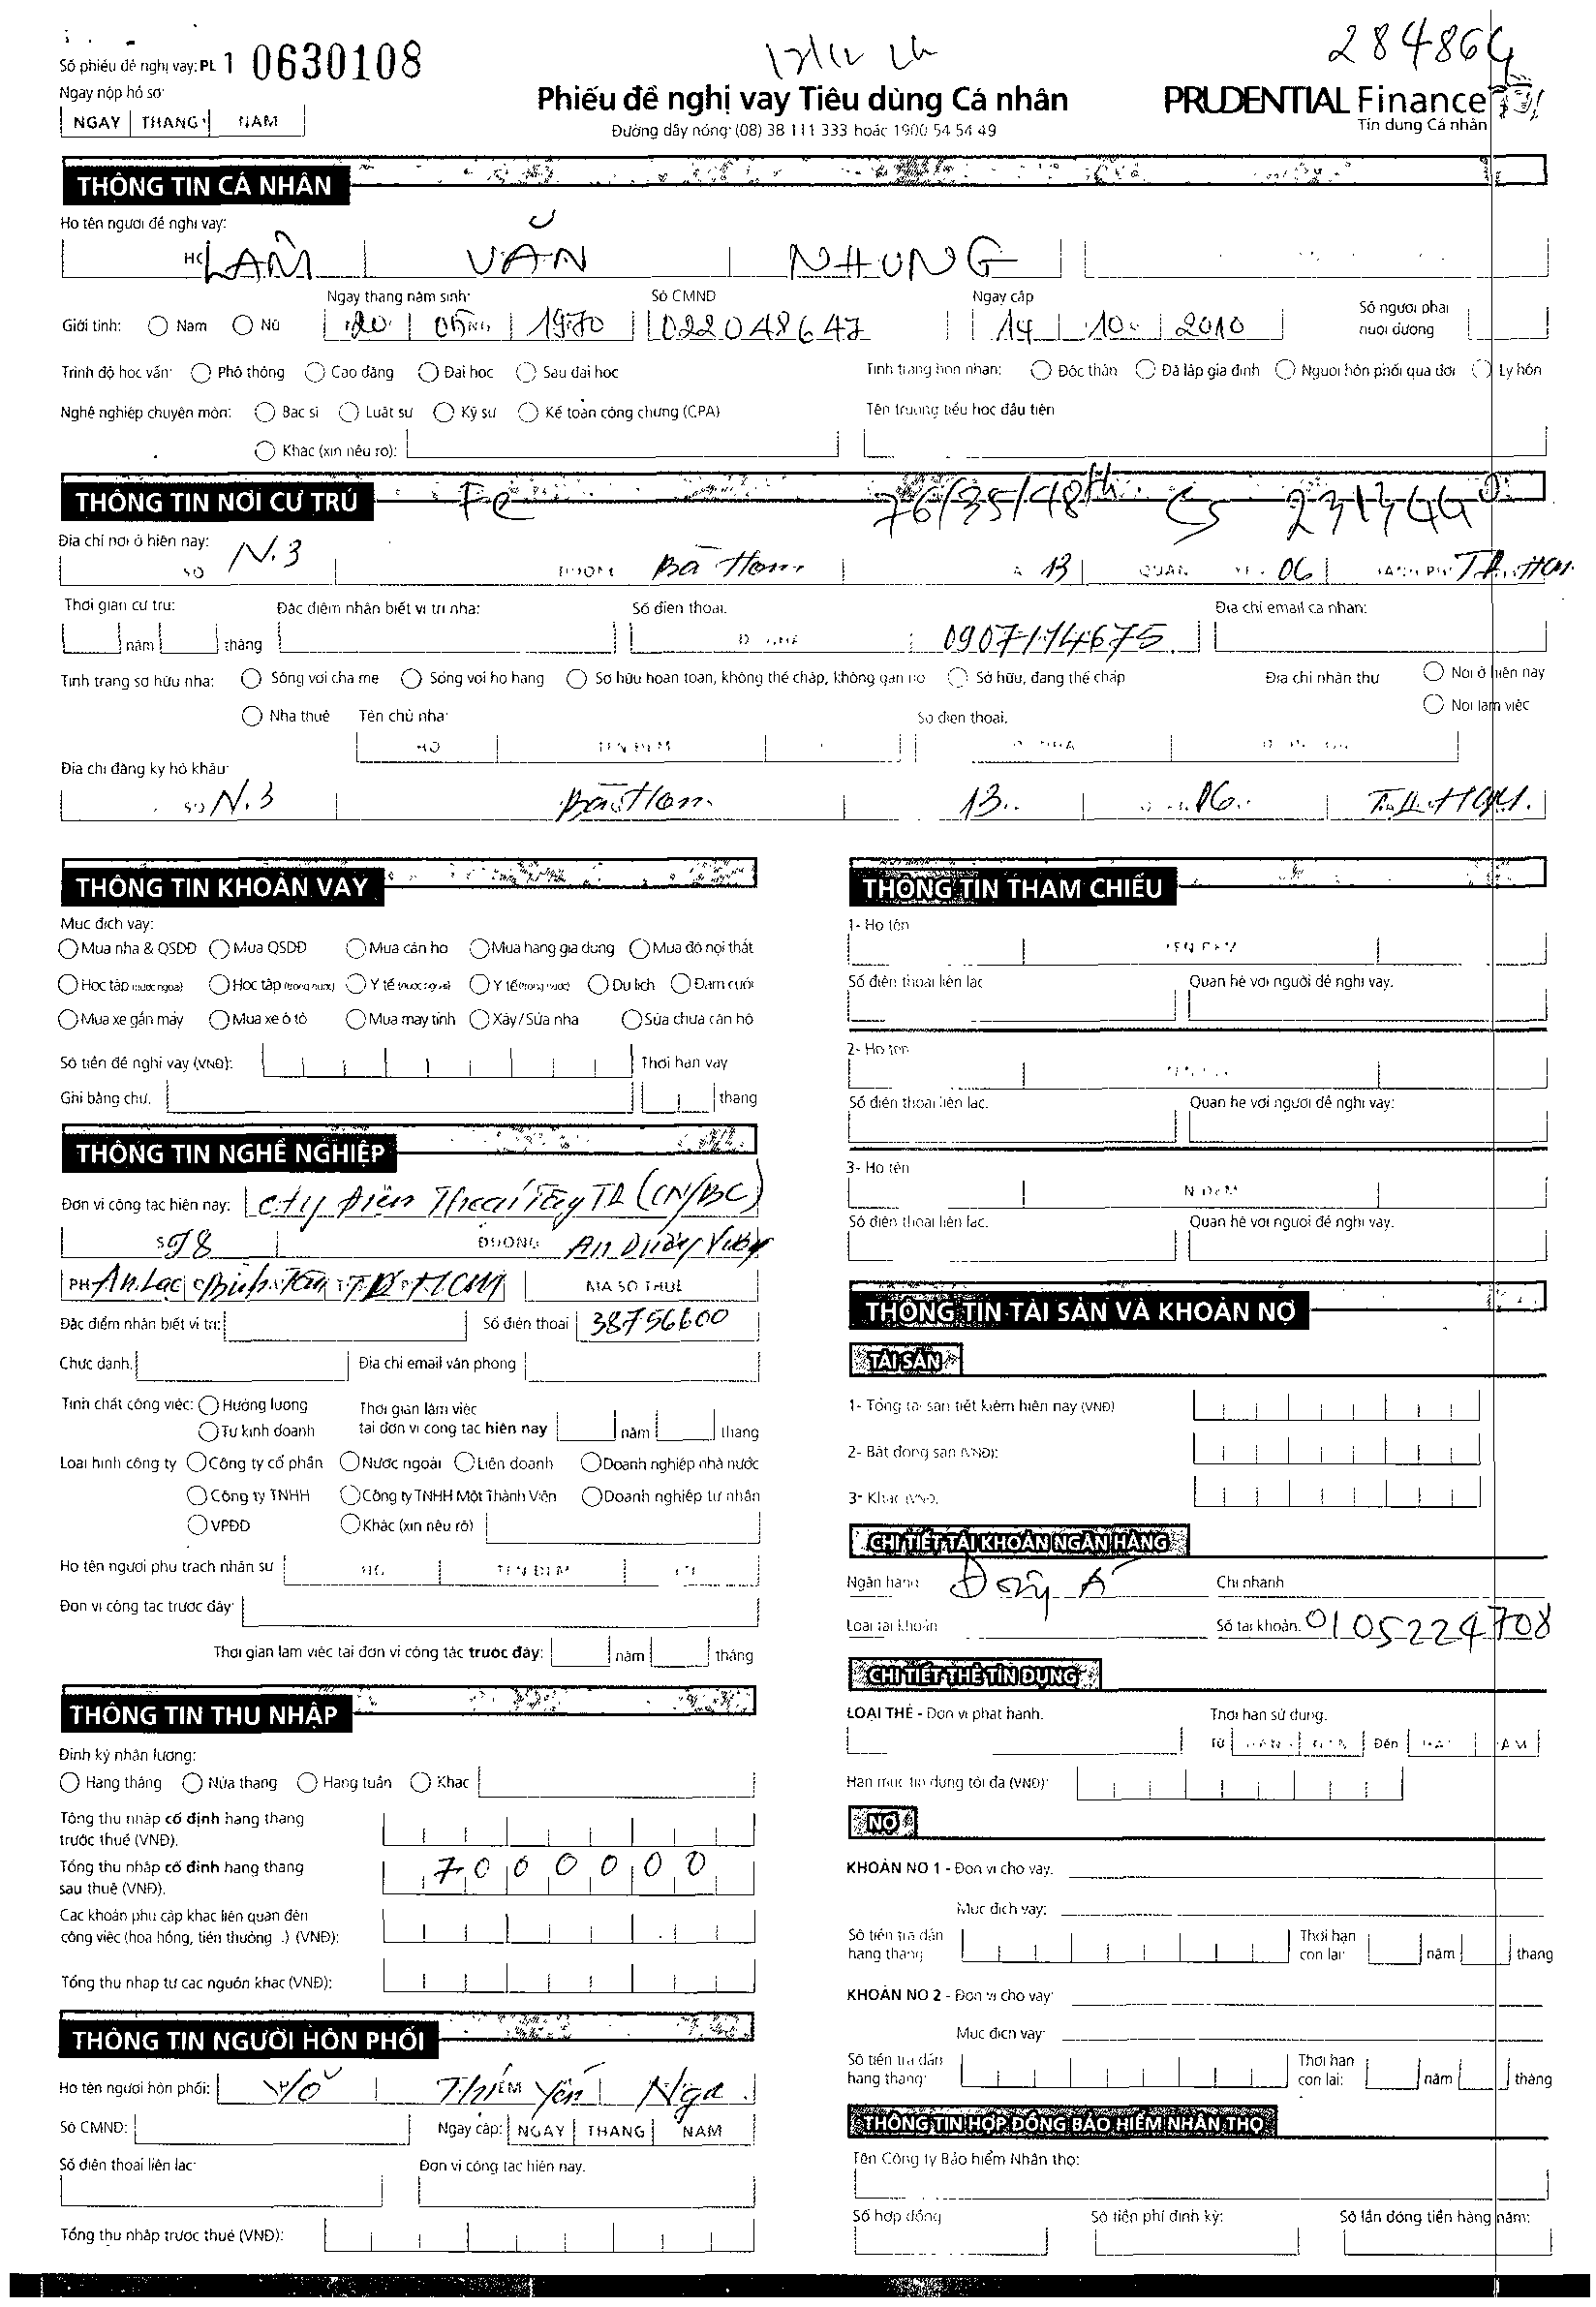 284864
Số phiếu đề nghị vay: PL 1 0630108
Ngày nộp hồ sơ:
NGÀY THÁNG NĂM
Phiếu đề nghị vay Tiêu dùng Cá nhân
Đường dây nóng: (08) 38 111 333 hoặc 1900 54 54 49
PRUDENTIAL Finance
Tín dụng Cá nhân
THÔNG TIN CÁ NHÂN
Họ tên người đề nghị vay:
LÂM VĂN NHUNG
Ngày tháng năm sinh: Số CMND Ngày cấp Số người phải nuôi dưỡng
Giới tính: Nam Nữ 20 05 1970 022048647 14 10 2010
Trình độ học vấn: Phổ thông Cao đẳng Đại học Sau đại học Tình trạng hôn nhân: Độc thân Đã lập gia đình Người hôn phối qua đời Ly hôn
Nghề nghiệp chuyên môn: Bác sĩ Luật sư Kỹ sư Kế toán công chứng (CPA) Tên trường tiểu học đầu tiên
Khác (xin nêu rõ):
THÔNG TIN NƠI CƯ TRÚ
Địa chỉ nơi ở hiện nay:
SỐ N.3 Bà Hom 13 QUẬN 06 TP.HCM
Thời gian cư trú: Đặc điểm nhận biết vị trí nhà: Số điện thoại: Địa chỉ email cá nhân:
năm tháng 0907174675
Tình trạng sở hữu nhà: Sống với cha mẹ Sống với họ hàng Sở hữu hoàn toàn, không thế chấp, không gán nợ Sở hữu, đang thế chấp Địa chỉ nhận thư Nơi ở hiện nay
Nhà thuê Tên chủ nhà: Số điện thoại: Nơi làm việc
HỌ TÊN ĐỆM
Địa chỉ đăng ký hộ khẩu:
SỐ N.3 Bà Hom 13 06 TP.HCM
THÔNG TIN KHOẢN VAY
Mục đích vay:
Mua nhà & QSDĐ Mua QSDĐ Mua căn hộ Mua hàng gia dụng Mua đồ nội thất
Học tập (nước ngoài) Học tập (trong nước) Y tế (nước ngoài) Y tế (trong nước) Du lịch Đám cưới
Mua xe gắn máy Mua xe ô tô Mua máy tính Xây/Sửa nhà Sửa chữa căn hộ
Số tiền đề nghị vay (VNĐ): Thời hạn vay
Ghi bằng chữ: tháng
THÔNG TIN NGHỀ NGHIỆP
Đơn vị công tác hiện nay: Cty Điện Thoại Tây TP (CN/BC)
ĐƯỜNG An Dương Vương
An Lạc Bình Tân TP HCM MÃ SỐ THUẾ
Đặc điểm nhận biết vị trí: Số điện thoại 38756600
Chức danh: Địa chỉ email văn phòng
Tính chất công việc: Hưởng lương Tự kinh doanh Thời gian làm việc tại đơn vị công tác hiện nay năm tháng
Loại hình công ty Công ty cổ phần Nước ngoài Liên doanh Doanh nghiệp nhà nước
Công ty TNHH Công ty TNHH Một Thành Viên Doanh nghiệp tư nhân
VPĐD Khác (xin nêu rõ)
Họ tên người phụ trách nhân sự HỌ TÊN ĐỆM
Đơn vị công tác trước đây:
Thời gian làm việc tại đơn vị công tác trước đây: năm tháng
THÔNG TIN THU NHẬP
Định kỳ nhận lương:
Hàng tháng Nửa tháng Hàng tuần Khác
Tổng thu nhập cố định hàng tháng
trước thuế (VNĐ).
Tổng thu nhập cố định hàng tháng 7000000
sau thuế (VNĐ).
Các khoản phụ cấp khác liên quan đến
công việc (hoa hồng, tiền thưởng .) (VNĐ):
Tổng thu nhập từ các nguồn khác (VNĐ):
THÔNG TIN NGƯỜI HÔN PHỐI
Họ tên người hôn phối: Võ Thị Yến Nga
Số CMND: Ngày cấp: NGÀY THÁNG NĂM
Số điện thoại liên lạc: Đơn vị công tác hiện nay.
Tổng thu nhập trước thuế (VNĐ):
THÔNG TIN THAM CHIẾU
1- Họ tên
Số điện thoại liên lạc Quan hệ với người đề nghị vay.
2- Họ tên
Số điện thoại liên lạc. Quan hệ với người đề nghị vay:
3- Họ tên
Số điện thoại liên lạc. Quan hệ với người đề nghị vay.
THÔNG TIN TÀI SẢN VÀ KHOẢN NỢ
TÀI SẢN
1- Tổng tài sản tiết kiệm hiện nay (VNĐ)
2- Bất động sản (VNĐ):
3- Khác (VNĐ).
CHI TIẾT TÀI KHOẢN NGÂN HÀNG
Ngân hàng Đông Á Chi nhánh
Loại tài khoản Số tài khoản. 0105224708
CHI TIẾT THẺ TÍN DỤNG
LOẠI THẺ - Đơn vị phát hành. Thời hạn sử dụng.
Từ Đến
Hạn mức tín dụng tối đa (VNĐ):
NỢ
KHOẢN NỢ 1 - Đơn vị cho vay.
Mục đích vay:
Số tiền trả dần hàng tháng Thời hạn còn lại: năm tháng
KHOẢN NỢ 2 - Đơn vị cho vay:
Mục đích vay:
Số tiền trả dần hàng tháng: Thời hạn còn lại: năm tháng
THÔNG TIN HỢP ĐỒNG BẢO HIỂM NHÂN THỌ
Tên Công ty Bảo hiểm Nhân thọ:
Số hợp đồng Số tiền phí định kỳ: Số lần đóng tiền hàng năm: